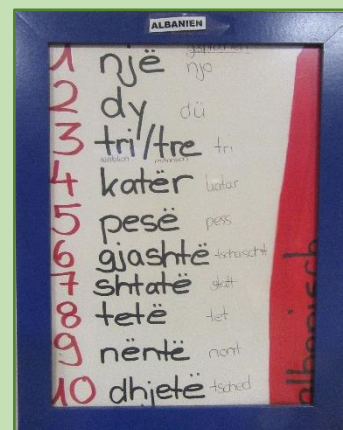 ALBANIEN
gesprochen
1 një njo
2 dy dü
3 tri/tre tri
weiblich männlich
4 katër katar
5 pesë pess
6 gjashtë tschascht
7 shtatë statt
8 tetë tet
9 nëntë nont
10 dhjetë tsched
albanisch